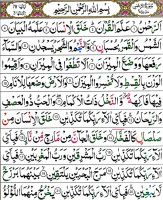 بِسْمِ اللهِ الرَّحْمٰنِ الرَّحِيْمِ
اَلرَّحْمٰنُ عَلَّمَ الْقُرْاٰنَ خَلَقَ الْاِنْسَانَ عَلَّمَهُ الْبَيَانَ
اَلشَّمْسُ وَالْقَمَرُ بِحُسْبَانٍ وَّالنَّجْمُ وَالشَّجَرُ يَسْجُدٰنِ وَالسَّمَآءَ
رَفَعَهَا وَوَضَعَ الْمِيْزَانَ اَلَّا تَطْغَوْا فِي الْمِيْزَانِ وَاَقِيْمُوا الْوَزْنَ
بِالْقِسْطِ وَلَا تُخْسِرُوا الْمِيْزَانَ وَالْاَرْضَ وَضَعَهَا لِلْاَنَامِ
فِيْهَا فَاكِهَةٌ وَّالنَّخْلُ ذَاتُ الْاَكْمَامِ وَالْحَبُّ ذُو الْعَصْفِ
وَالرَّيْحَانُ فَبِاَيِّ اٰلَآءِ رَبِّكُمَا تُكَذِّبٰنِ خَلَقَ الْاِنْسَانَ مِنْ
صَلْصَالٍ كَالْفَخَّارِ وَخَلَقَ الْجَآنَّ مِنْ مَّارِجٍ مِّنْ نَّارٍ
فَبِاَيِّ اٰلَآءِ رَبِّكُمَا تُكَذِّبٰنِ رَبُّ الْمَشْرِقَيْنِ وَرَبُّ الْمَغْرِبَيْنِ
فَبِاَيِّ اٰلَآءِ رَبِّكُمَا تُكَذِّبٰنِ مَرَجَ الْبَحْرَيْنِ يَلْتَقِيٰنِ بَيْنَهُمَا بَرْزَخٌ
لَّا يَبْغِيٰنِ فَبِاَيِّ اٰلَآءِ رَبِّكُمَا تُكَذِّبٰنِ يَخْرُجُ مِنْهُمَا اللُّؤْلُؤُ